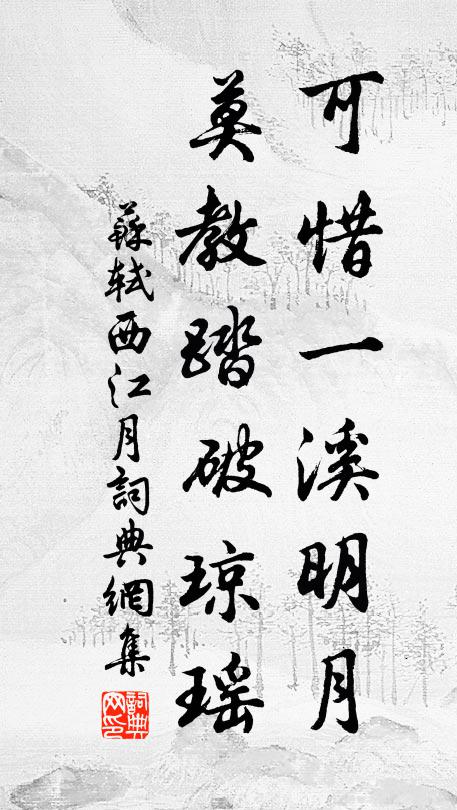 可惜一溪明月
莫教踏破琼瑶
蘇軾西江月詞典網集
詞典網印